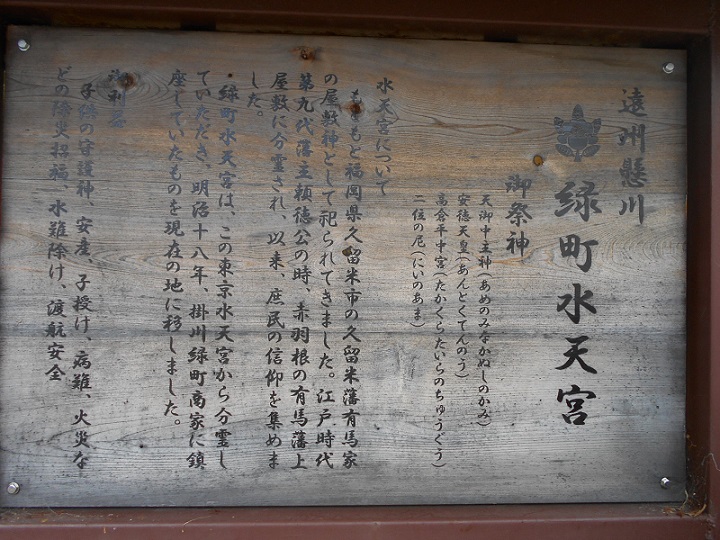 遠州懸川
緑町水天宮
御祭神
天御中主神(あめのみなかぬしのかみ)
安徳天皇(あんとくてんのう)
高倉平中宮(たかくらたいらのちゅうぐう)
二位の尼(にいのあま)
水天宮について
もともと福岡県久留米市の久留米藩有馬家
の屋敷神として祀られてきました。江戸時代
第九代藩主頼徳公の時、赤羽根の有馬藩上
屋敷に分霊され、以来、庶民の信仰を集めま
した。
緑町水天宮は、この東京水天宮から分霊し
ていただき、明治十八年、掛川緑町商家に鎮
座していたものを現在の地に移しました。
御利益
子供の守護神、安産、子授け、病難、火災な
どの除災招福、水難除け、渡航安全